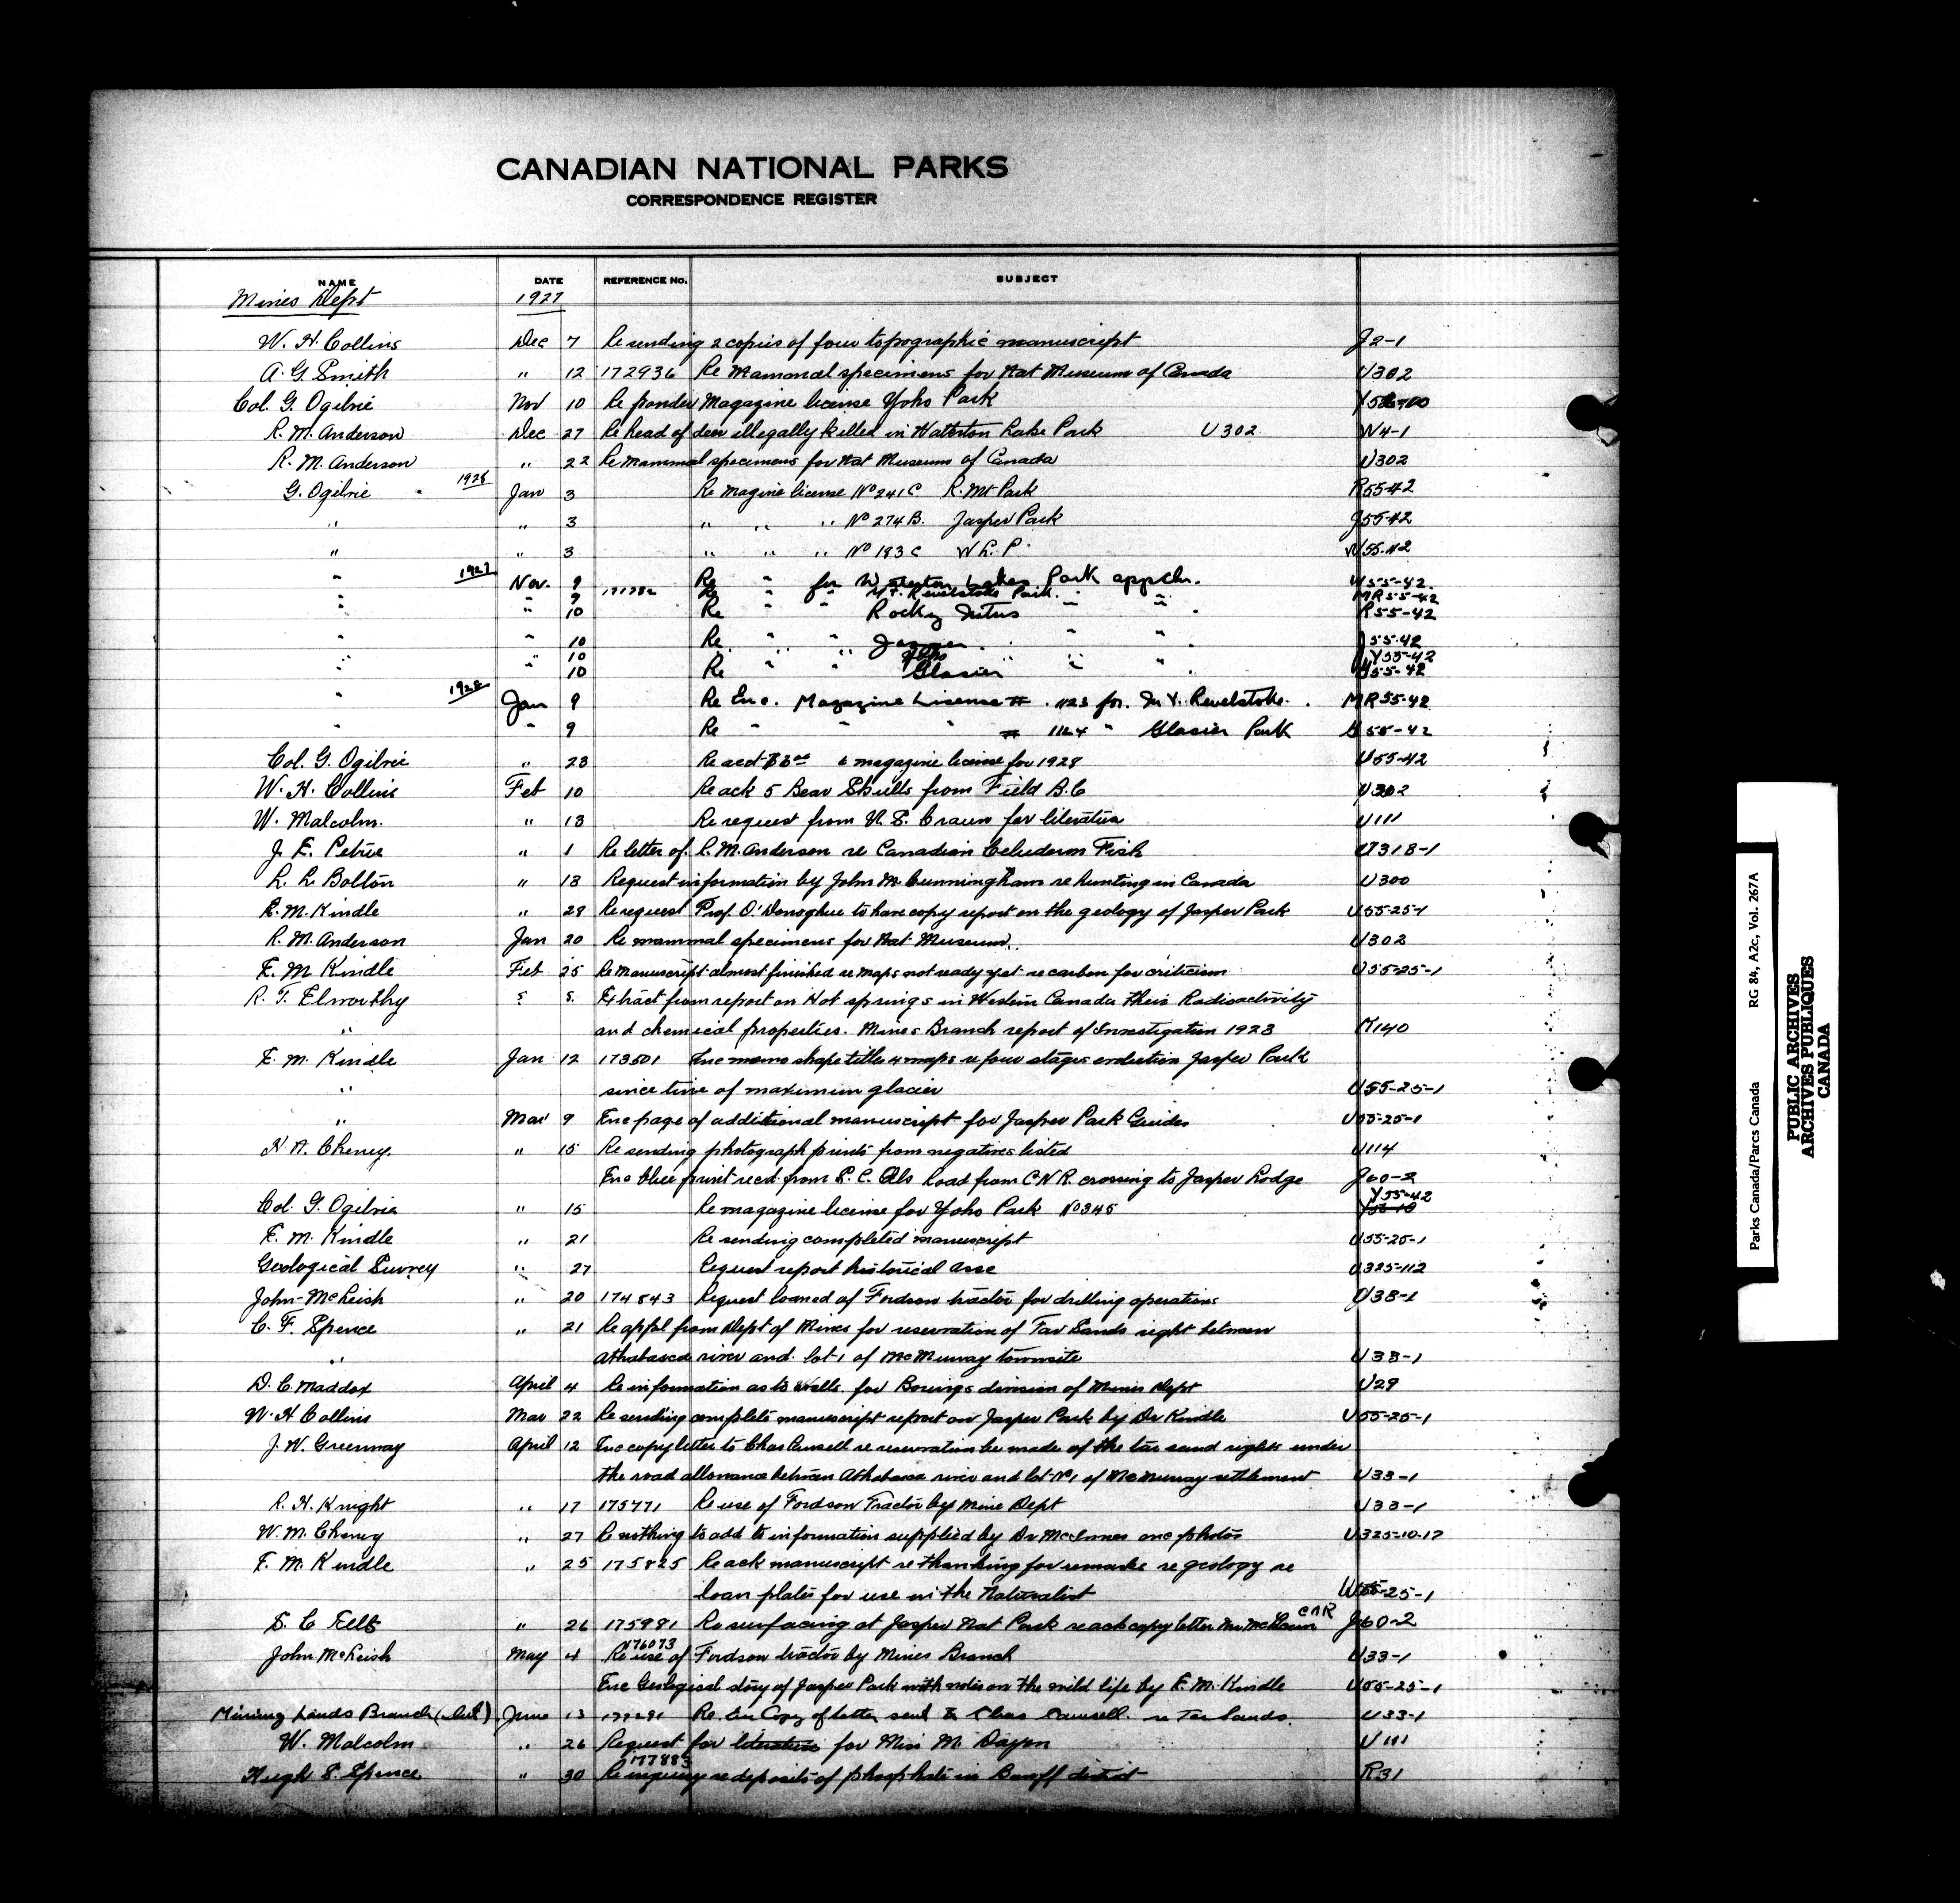 CANADIAN NATIONAL PARKS
CORRESPONDENCE REGISTER
NAME DATE REFERENCE No. SUBJECT
Mines Dept 1927
W. H. Collins Dec 7 Re sending 2 copies of four topographic manuscript J2-1
A. G. Smith " 12 172936 Re Mammal specimens for Nat Museum of Canada U302
Col. G. Ogilvie Nov 10 Re powder Magazine license Yoho Park
R. M. Anderson Dec 27 Re head of deer illegally killed in Waterton Lake Park U302 W4-1
R. M. Anderson " 22 Re Mammal specimens for Nat Museum of Canada U302
G. Ogilvie 1928 Jan 3 Re magine license No 241C R. Mt Park R55-42
" " 3 " " " No 274 B. Jasper Park J55-42
" " 3 " " " No 183 C W L. P. W55-42
" 1927 Nov. 9 171782 Re " for Waterton Lakes Park appcln. W55-42
" " 9 Re " " Mt. Revelstoke Park " " MR55-42
" " 10 Re " " Rocky Mtns " " R55-42
" " 10 Re " " Jasper " " J55-42
" " 10 " " Yoho " " Y55-42
" " 10 Re " " Glacier " " G55-42
" 1928 Jan 9 Re Enc. Magazine License # 1123 for Mt. Revelstoke MR55-42
" " 9 Re " " # 1124 " Glacier Park G55-42
Col. G. Ogilvie " 23 Re acct & magazine license for 1928 U55-42
W. H. Collins Feb 10 Re ack 5 Bear Skulls from Field B.C U302
W. Malcolm. " 13 Re request from N. S. Braun for literature U111
J. E. Petrie " 1 Re letter of R. M. Anderson re Canadian Fish U318-1
L. L Bolton " 13 Request information by John M Cunningham re hunting in Canada U300
E. M. Kindle " 28 Re request Prof. O'Donoghue to have copy report on the geology of Jasper Park U55-25-1
R. M. Anderson Jan 20 Re mammal specimens for Nat Museum. U302
E. M Kindle Feb 25 Re Manuscript almost finished re maps not ready yet re carbon for criticism U55-25-1
R. T. Elworthy Extract from report on Hot springs in Western Canada their Radioactivity
" and chemical properties. Mines Branch report of Investigation 1923 K140
E. M. Kindle Jan 12 173501 Enc memo shape title 4 maps re four stages evolution Jasper Park
" since time of maximum glacier U55-25-1
" Mar 9 Enc page of additional manuscript for Jasper Park Guides U55-25-1
H N. Cheney. " 15 Re sending photograph prints from negatives listed U114
Enc blue print recd from S. C. Ells Road from C N R. crossing to Jasper Lodge J60-2
Col. G. Ogilvie " 15 Re magazine license for Yoho Park No 345 Y55-42
E. M. Kindle " 21 Re sending completed manuscript U55-25-1
Geological Survey " 27 Request report historical Asse U325-112
John McLeish " 20 174843 Request loaned of Fordson tractor for drilling operations U33-1
C. F. Spence " 21 Re apfal from Dept of Mines for reservation of Tar Sands right between
" Athabasca river and lot 1 of McMurray townsite U33-1
D. C. Maddox April 4 Re information as to Wells for Borings division of Mines Dept U29
W. H Collins Mar 22 Re sending complete manuscript report on Jasper Park by Dr Kindle U55-25-1
J. W. Greenway April 12 Enc copy letter to Chas Camsell re reservation be made of the tar sand rights under
the road allowance between Athabasca river and lot No 1 of McMurray settlement U33-1
R. H. Knight " 17 175471 Re use of Fordson Tractor by Mine Dept U33-1
W. M. Cheney " 27 Re nothing to add to information supplied by Dr McInnes enc photos U325-10-17
E. M. Kindle " 25 175825 Re ack manuscript re thanking for remarks re geology re
loan plates for use in the Naturalist U55-25-1
S. C Ells " 26 175981 Re surfacing at Jasper Nat Park re ach copy letter Mr CNR J60-2
John McLeish May 4 176073 Re use of Fordson tractor by Mines Branch U33-1
Enc Geological story of Jasper Park with notes on the wild life by E. M. Kindle U55-25-1
Mining Lands Branch (Int) June 13 177291 Re. Enc Copy of letter sent to Chas Camsell re Tar Sands. U33-1
W. Malcolm " 26 Request for literature for Miss M. Dayon U111
Hugh S. Spence " 30 177883 Re inquiry re deposits of phosphate in Banff district R31
Parks Canada/Parcs Canada RG 84, A2c, Vol. 267A
PUBLIC ARCHIVES
ARCHIVES PUBLIQUES
CANADA